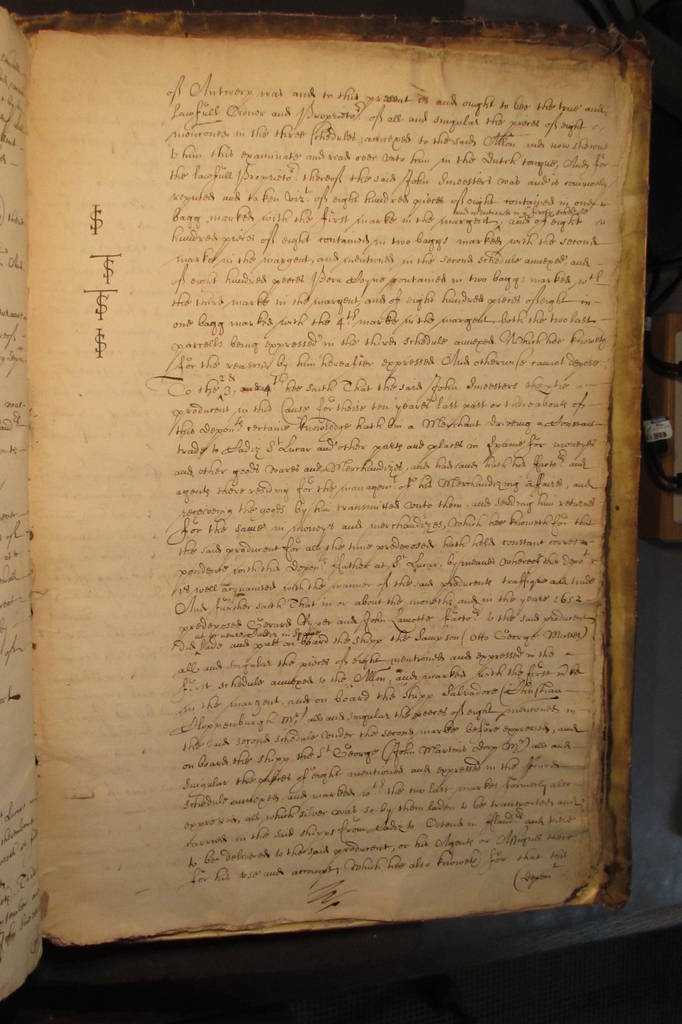 of Antwerp was and to this present is and ought to bee the true and
lawfull Owner and Proprieto.r of all and singular the peeces of eight
mentioned in the three schedules annexed to the said Allon and now showne
to him this examinate and read over unto him in the dutch tongue, And for
the lawfull Proprieto.r thereof the said John Dmeesters was and is commonly
reputed and taken viz.t of eight hundred peeces of eight contained in one
bagg marked with the first marke in the margent, and mentioned in the first schedule and of eight
hundred peeces of eight contained in two baggs marked with the second
marke in the margent, and mentioned in the second schedule annexed and
of eight hundred peeces more alsoe contained in two baggs marked w.th
the third marke in the margent, and of eight hundred peeces of eight in
one bagg marked with the 4.th marke in the margent, both the two last
parcells being expressed in the third schedule annexed. Which hee knoweth
for the reasons by him hereafter expressed And otherwise cannot depose.
To the 2.nd 3. and 4.th hee saith That the said John Dmeesters the
producent in this cause for theise ten yeares last past or thereabouts of
this depon.ts certaine knowledge hath bin a Merchant driveing a Constant
trade to Cadiz S.t Lucar and other parts and places in Spaine for moneyes
and other goods wares and Merchandizes, and had and hath his Facto.rs and
agents there resideing for the managem.t of his Merchandizing affaires, and
receiveing the goods by him transmitted unto them, and sending him returnes
for the same in moneys and merchandizes, Which hee knoweth for that
the said producent for all the time predeposed hath held constant corres=
pondence with this depon.ts father at S.t Lucar, by meanes whereof this depon.t
is well acquainted with the manner of the said producents traffique and trade
And further saith That in or about the moneths and in the yeare 1652
predeposed Gerard and John Lamotte Facto.rs to the said producent
at Cadiz in Spaine
did lade and putt on board the shipp the Sampson (Otto George Master)
all and singular the peeces of eight mentioned and expressed in the
first schedule annexed to the Allon, and marked with the first m.ke
in the margent, and on board the shipp Salvadore (Christian
Cloppenburgh M.r) all and singular the peeces of eight mentioned in
the said second schedule under the second marke before expressed, and
on board the shipp the S.t George (John Martins Dorp M.r) all and
singular the peeces of eight mentioned and expressed in the third
schedule annexed, and marked w.th the two last markes formerly alsoe
expressed, all which silver was so by them laden to be transported and
carried in the said shipps from Cadiz to Ostend in Flanders and there
to be delivered to the said producent, or his Agents or Assignes there
for his use and accompt, Which hee alsoe knoweth for that this
(depon.t